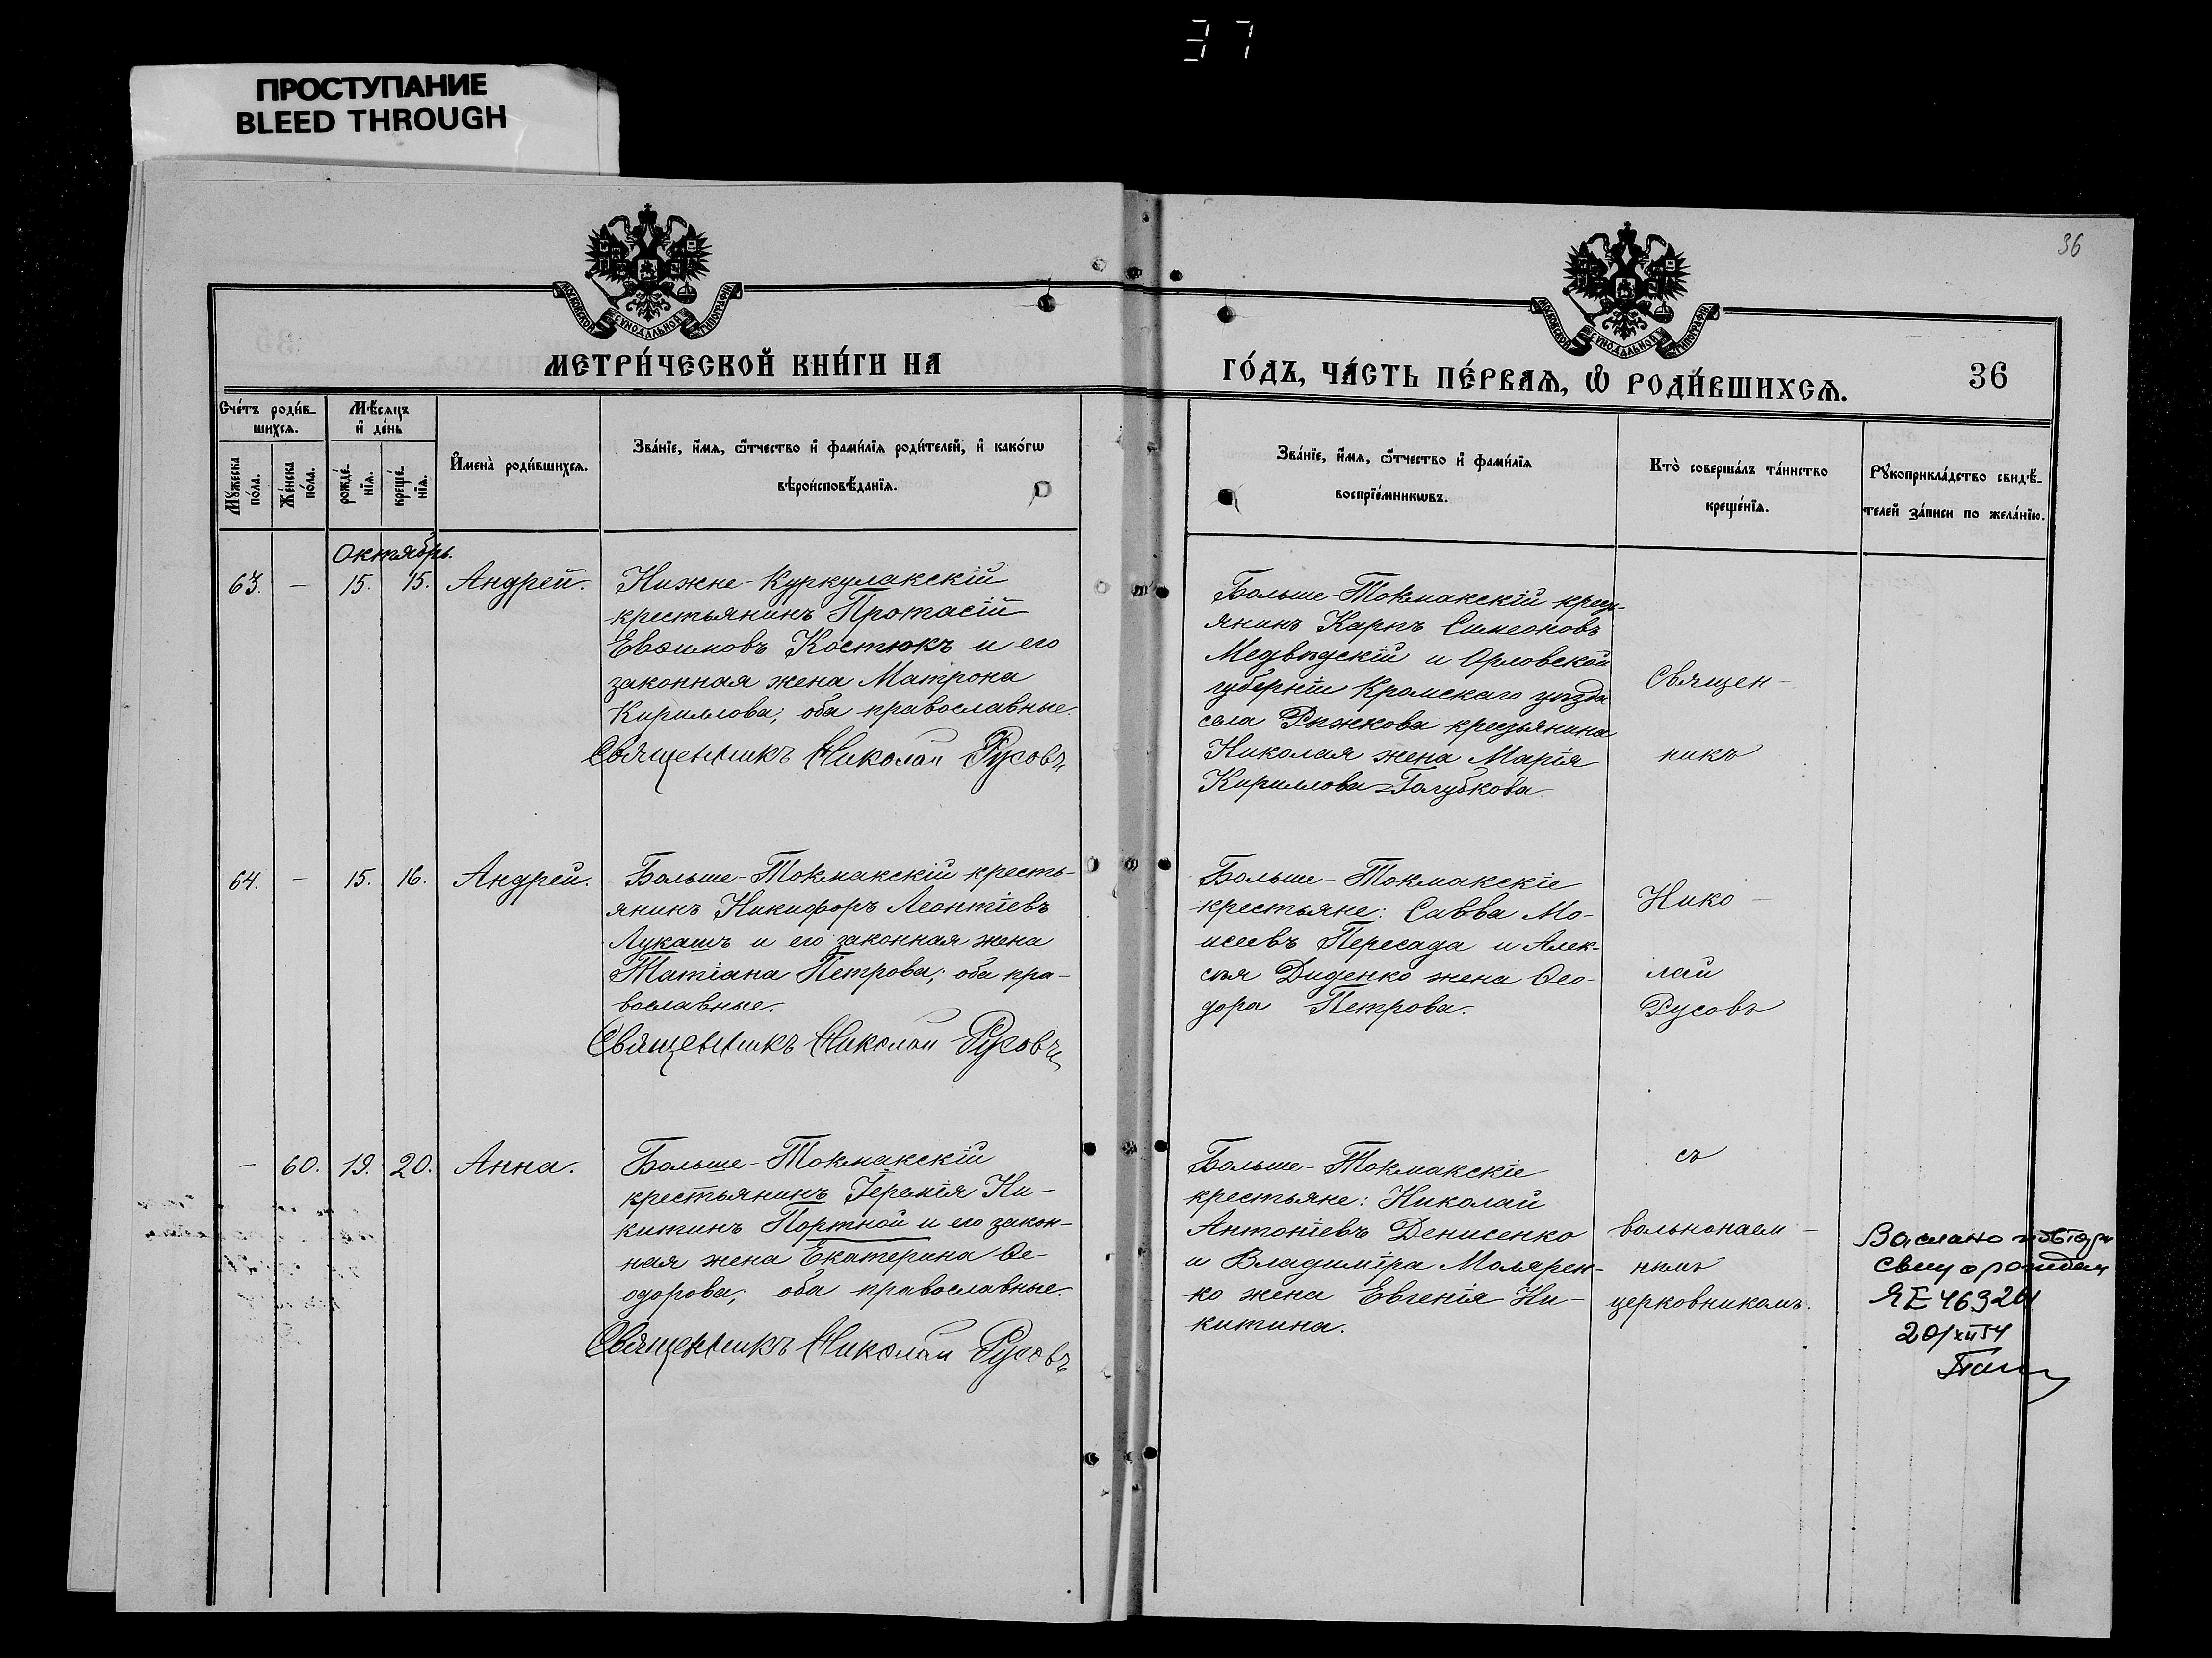 37
ПРОСТУПАНИЕ
BLEED THROUGH
36
МОСКОВСКОЙ СУНОДАЛЬНОЙ ТИПОГРАФІИ
МОСКОВСКОЙ СУНОДАЛЬНОЙ ТИПОГРАФІИ
МЕТРИ́ЧЕСКОЙ КНИ́ГИ НА
ГО́ДЪ, ЧА́СТЬ ПЕ́РВАѦ, Ѽ РОДИ́ВШИХСѦ.
36
Сче́тъ роди́в-
шихсѧ.
Мꙋ́жеска
по́ла.
Же́нска
по́ла.
Мѣ́сѧцъ
и҆ де́нь
рожде́-
нїѧ.
креще́-
нїѧ.
И҆мена̀ роди́вшихсѧ.
Зва́нїе, и҆́мѧ, ѻ҆́тчество и҆ фами́лїѧ роди́телей, и҆ како́гѡ
вѣроисповѣ́данїѧ.
Зва́нїе, и҆́мѧ, ѻ҆́тчество и҆ фами́лїѧ
воспрїе́мникѡвъ.
Кто̀ соверша́лъ та́инство
креще́нїѧ.
Рꙋкоприкла́дство свидѣ́-
телей за́писи по жела́нїю.
Октябрь.
63. — 15. 15. Андрей.
Нижне-Куркулакскій
крестьянинъ Протасій
Евѳимовъ Костюкъ и его
законная жена Матрона
Кириллова; оба православные.
Священникъ Николай Русовъ
Больше-Токмакскій кресть-
янинъ Карпъ Симеоновъ
Медвѣдскій и Орловской
губерніи Кромскаго уѣзда
села Рыжкова крестьянина
Николая жена Марія
Кириллова Голубкова
Священ-
никъ
64. — 15. 16. Андрей.
Больше-Токмакскій кресть-
янинъ Никифоръ Леонтіевъ
Лукашъ и его законная жена
Татіана Петрова; оба пра-
вославные.
Священникъ Николай Русовъ
Больше-Токмакскіе
крестьяне: Савва Мо-
исеевъ Пересада и Алек-
сѣя Диденко жена Ѳео-
дора Петрова.
Нико-
лай
Русовъ
— 60. 19. 20. Анна.
Больше-Токмакскій
крестьянинъ Іеремія Ни-
китинъ Портной и его закон-
ная жена Екатерина Ѳе-
одорова; оба православные.
Священникъ Николай Русовъ
Больше-Токмакскіе
крестьяне: Николай
Антоніевъ Денисенко
и Владиміра Молярен-
ко жена Евгенія Ни-
китина.
съ
вольнонаем-
нымъ
церковникомъ.
свид о рожден
20/XII 54